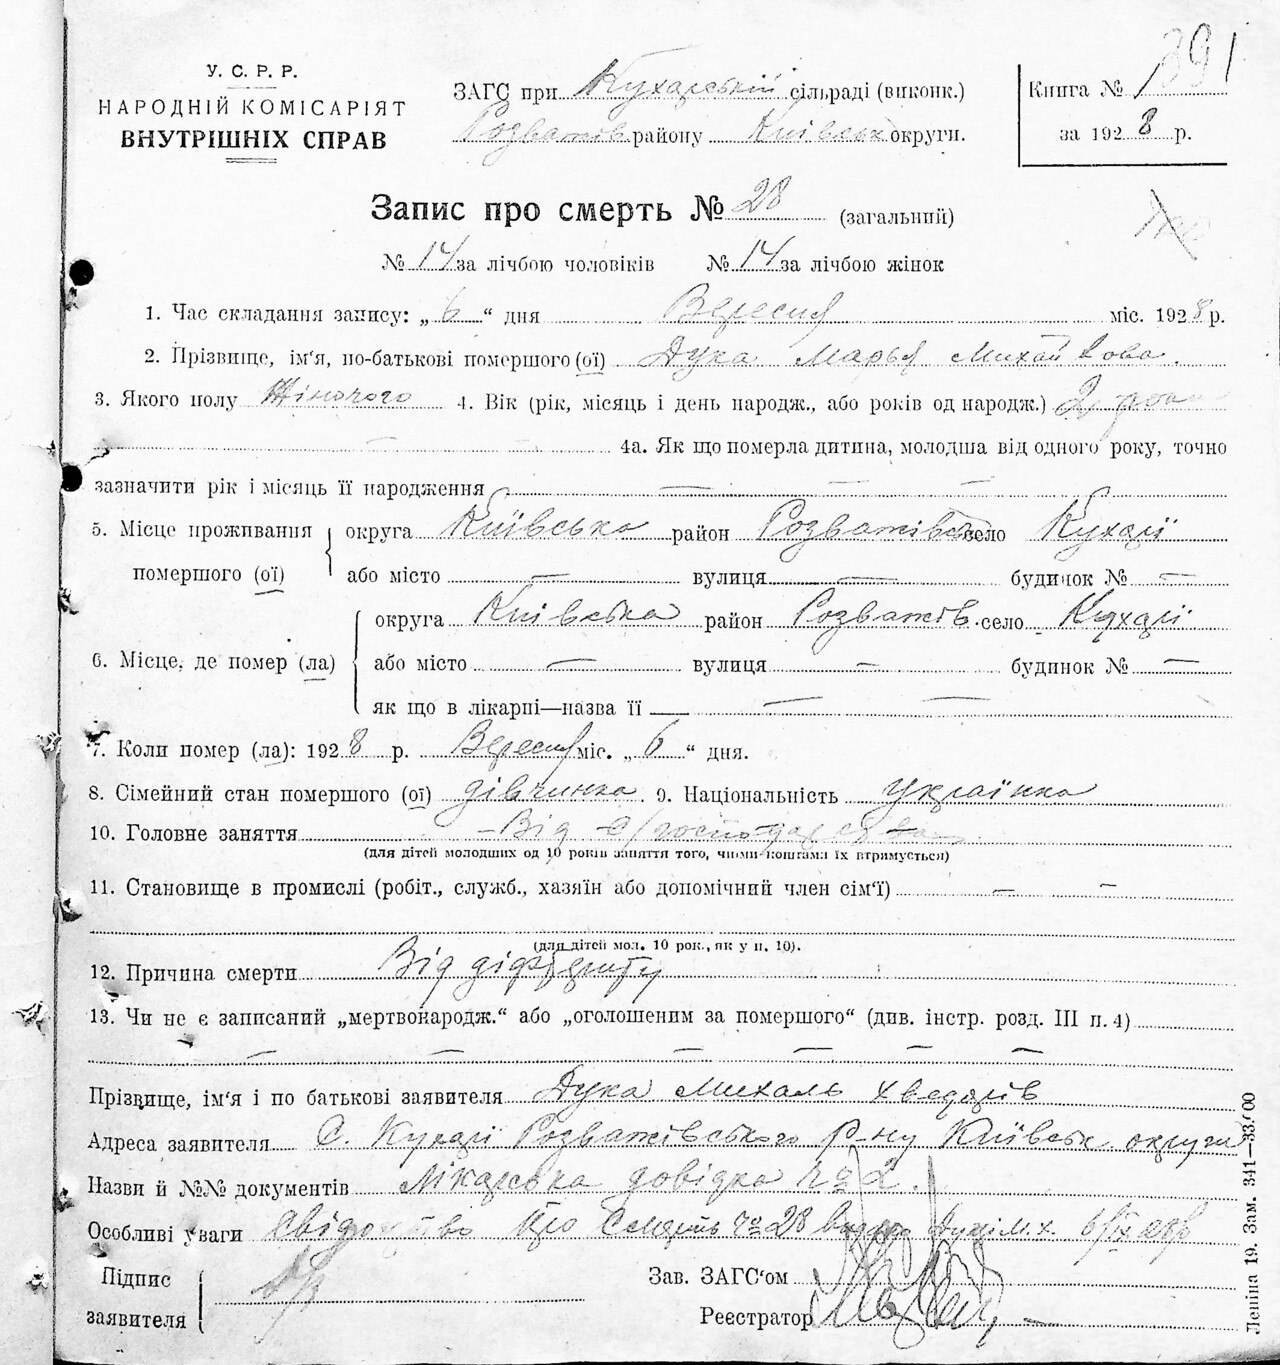 391
У. С. Р. Р.
НАРОДНІЙ КОМІСАРІЯТ
ВНУТРІШНІХ СПРАВ
ЗАГС при Кухарській сільраді (виконк.)
Розважів району Київськ округи.
Книга № 1
за 1928 р.
Запис про смерть № 28 (загальний)
№ 14 за лічбою чоловіків № 14 за лічбою жінок
1. Час складання запису: „6“ дня Вересня міс. 1928 р.
2. Прізвище, ім‘я, по-батькові помершого (ої) Дука Марья Михайлова.
3. Якого полу Жіночого 4. Вік (рік, місяць і день народж., або років од народж.) 2 роки
— — 4а. Як що померла дитина, молодша від одного року, точно
зазначити рік і місяць її народження — — —
5. Місце проживання помершого (ої) округа Київська район Розважівськ село Кухарі
або місто — вулиця — будинок № —
6. Місце, де помер (ла) округа Київська район Розважів. село Кухарі
або місто — вулиця — будинок № —
як що в лікарні—назва її — —
7. Коли помер (ла): 1928 р. Вересня міс. „6“ дня.
8. Сімейний стан помершого (ої) дівчинка. 9. Національність Українка
10. Головне заняття — Від с/господарства
(для дітей молодших од 10 років заняття того, чиїми коштами їх втримується)
11. Становище в промислі (робіт., служб., хазяїн або допомічний член сім‘ї) — —
(для дітей мол. 10 рок., як у п. 10).
12. Причина смерти Від діфтериту
13. Чи не є записаний „мертвонародж.“ або „оголошеним за помершого“ (див. інстр. розд. III п. 4)
— — — — — —
Прізвище, ім‘я і по батькові заявителя Дука Михаль Хведорів
Адреса заявителя С. Кухарі Розважівського р-ну Київськ. округи
Назви й №№ документів Лікарська довідка № 2.
Особливі уваги Свідоцтво про смерть № 28 видано Дуці М. Х. 6/IX 28р
Підпис заявителя
Зав. ЗАГС‘ом
Реєстратор
Леніна 19. Зам. 341—33.00